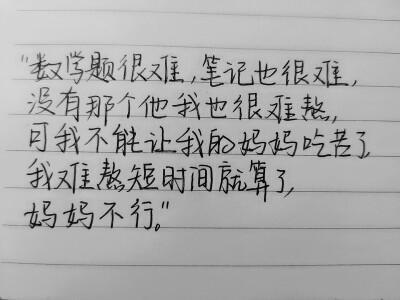 “数学题很难,笔记也很难,
没有那个他我也很难熬,
可我不能让我的妈妈吃苦了
我难熬短时间就算了,
妈妈不行。”